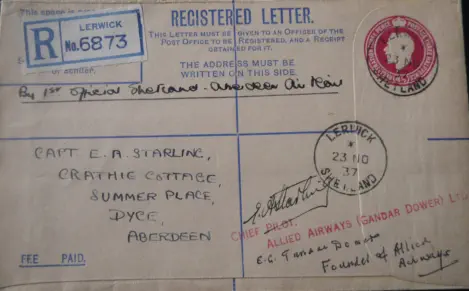 This space is
LERWICK
R No. 6873
REGISTERED LETTER.
THIS LETTER MUST BE GIVEN TO AN OFFICER OF THE
POST OFFICE TO BE REGISTERED, AND A RECEIPT
OBTAINED FOR IT.
THE ADDRESS MUST BE
WRITTEN ON THIS SIDE.
of sender.
SHETLAND
By 1st Special Shetland - Aberdeen Air Mail
LERWICK
23 NO
37
SHETLAND
CAPT E. A. STARLING,
CRATHIE COTTAGE,
SUMMER PLACE,
DYCE,
ABERDEEN
E A Starling
CHIEF PILOT.
ALLIED AIRWAYS (GANDAR DOWER) LTD
E. G. Gandar Dower
Founder of Allied
Airways
FEE PAID.